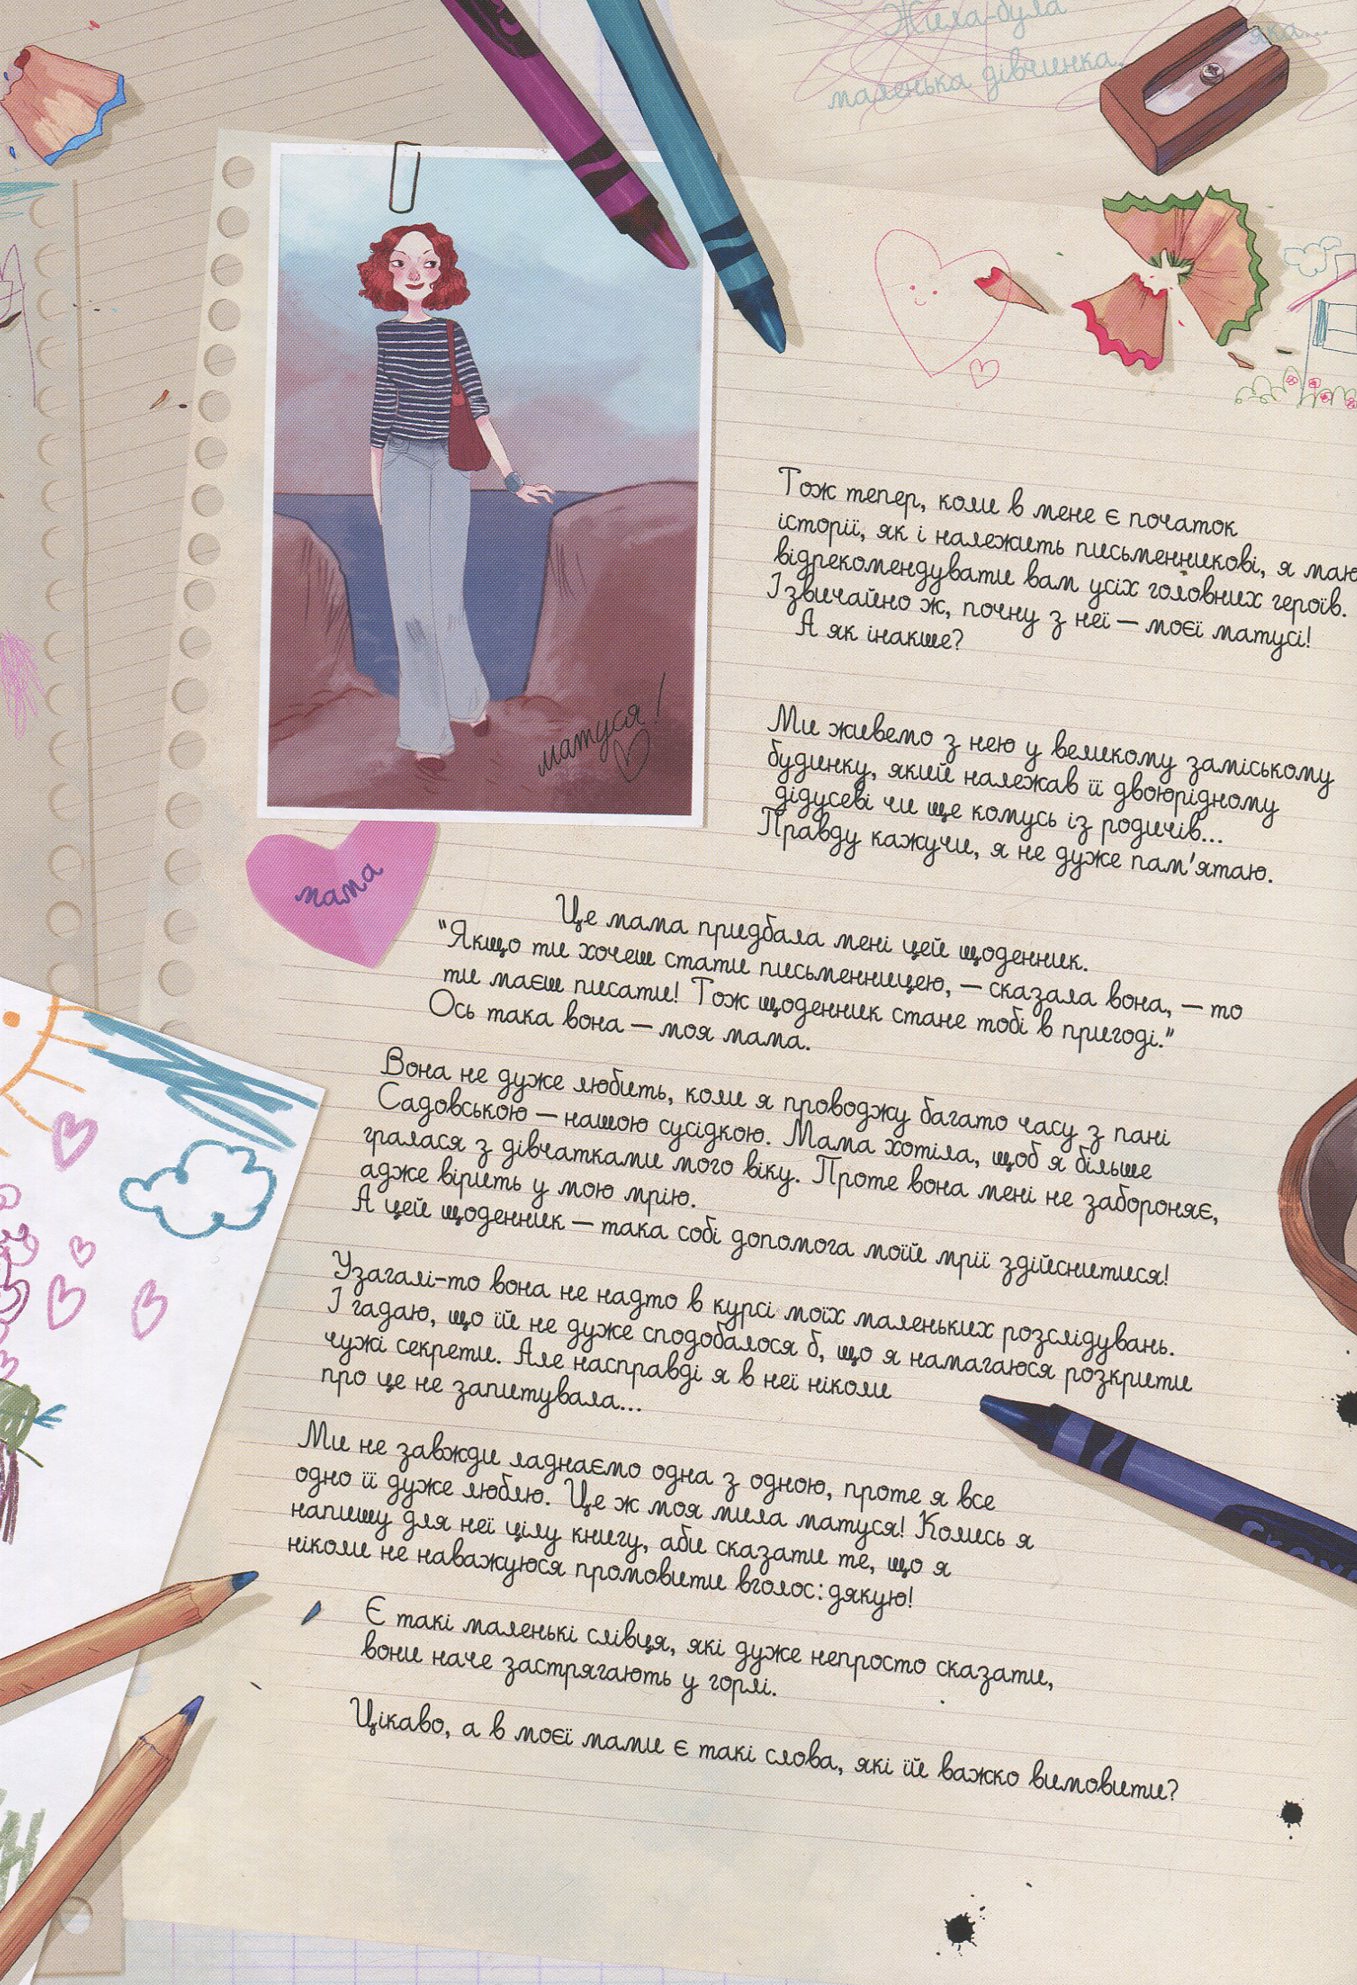 Жила-була
маленька дівчинка, яка...
Тож тепер, коли в мене є початок
історії, як і належить письменникові, я маю
відрекомендувати вам усіх головних героїв.
І звичайно ж, почну з неї — моєї матусі!
А як інакше?
матуся!
Ми живемо з нею у великому заміському
будинку, який належав її двоюрідному
дідусеві чи ще комусь із родичів...
Правду кажучи, я не дуже пам'ятаю.
мама
Це мама придбала мені цей щоденник.
"Якщо ти хочеш стати письменницею, — сказала вона, — то
ти маєш писати! Тож щоденник стане тобі в пригоді."
Ось така вона — моя мама.
Вона не дуже любить, коли я проводжу багато часу з пані
Садовською — нашою сусідкою. Мама хотіла, щоб я більше
гралася з дівчатками мого віку. Проте вона мені не забороняє,
адже вірить у мою мрію.
А цей щоденник — така собі допомога моїй мрії здійснитися!
Узагалі-то вона не надто в курсі моїх маленьких розслідувань.
І гадаю, що їй не дуже сподобалося б, що я намагаюся розкрити
чужі секрети. Але насправді я в неї ніколи
про це не запитувала...
Ми не завжди ладнаємо одна з одною, проте я все
одно її дуже люблю. Це ж моя мила матуся! Колись я
напишу для неї цілу книгу, аби сказати те, що я
ніколи не наважуюся промовити вголос: дякую!
Є такі маленькі слівця, які дуже непросто сказати,
вони наче застрягають у горлі.
Цікаво, а в моєї мами є такі слова, які їй важко вимовити?